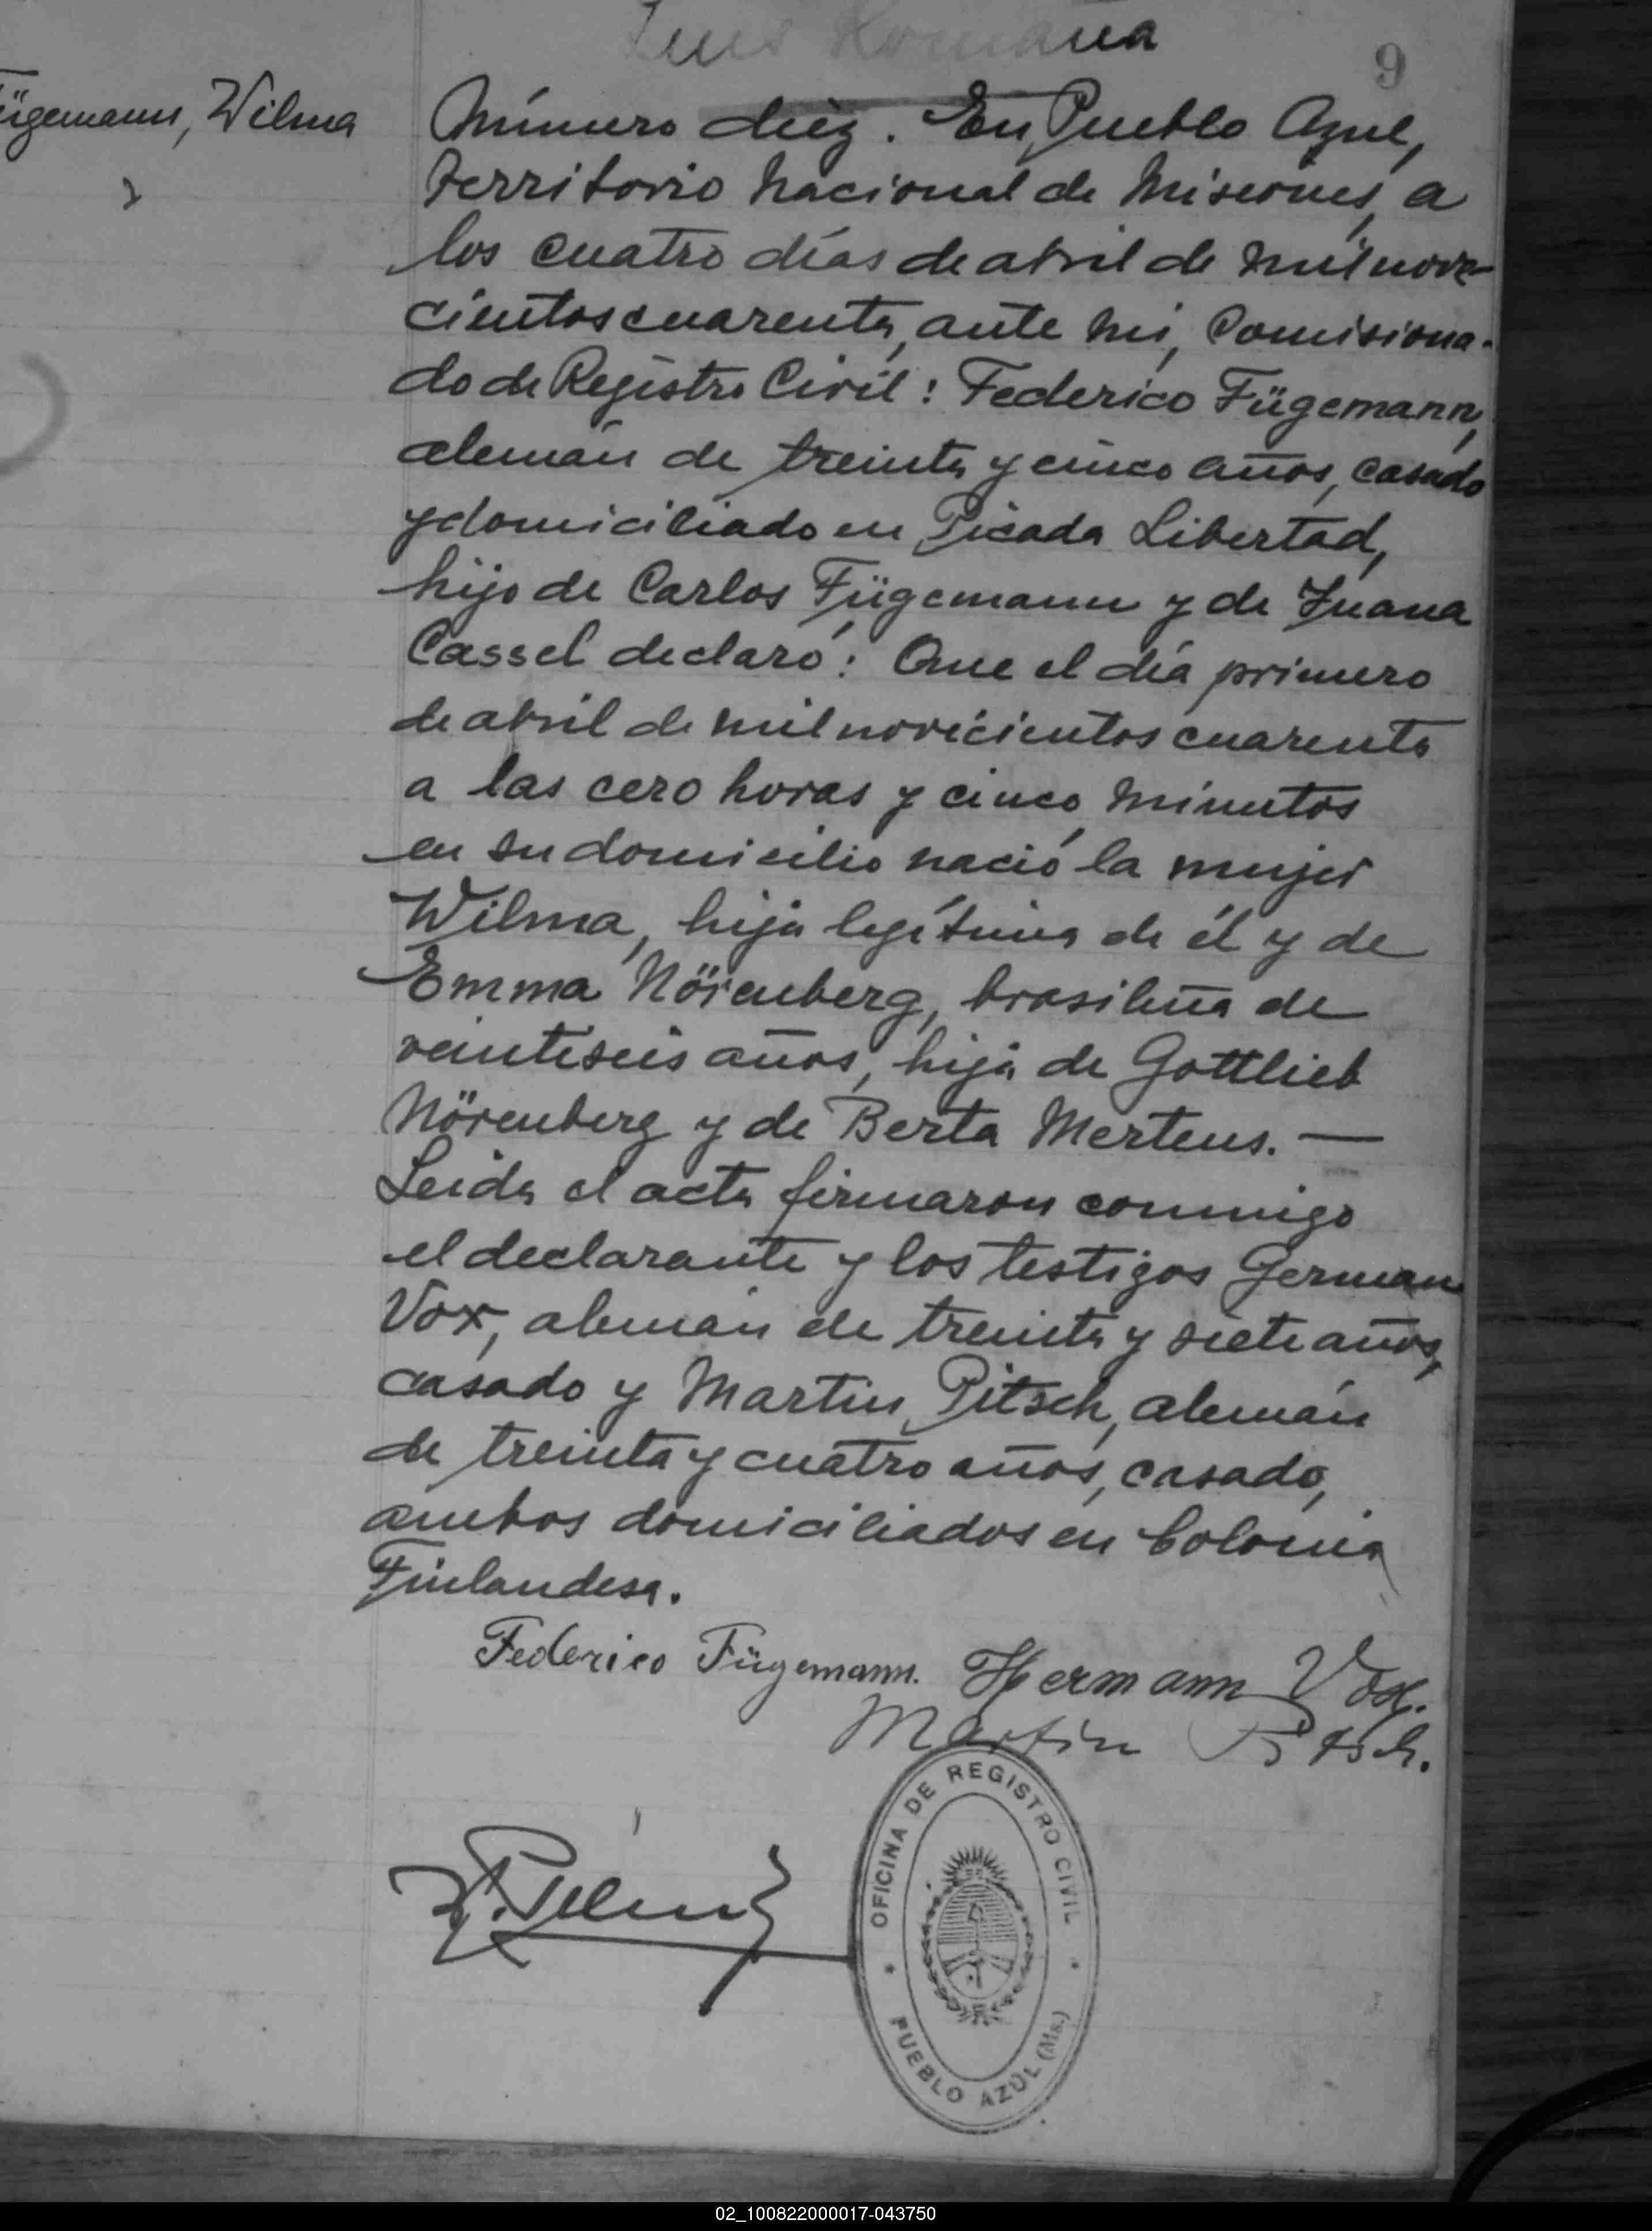 9
Fügemann, Wilma
Número diez. En Pueblo Azul,
Territorio Nacional de Misiones, a
los cuatro días de abril de mil nove-
cientos cuarenta, ante mi, Comisiona-
do de Registro Civil: Federico Fügemann,
alemán de treinta y cinco años, casado
y domiciliado en Picada Libertad,
hijo de Carlos Fügemann y de Juana
Cassel declaró: Que el día primero
de abril de mil novecientos cuarenta
a las cero horas y cinco minutos
en su domicilio nació la mujer
Wilma, hija legítima de él y de
Emma Nörenberg, brasileña de
veintiseis años, hija de Gottlieb
Nörenberg y de Berta Mertens. —
Leida el acta firmaron conmigo
el declarante y los testigos German
Vox, alemán de treinta y siete años,
casado y Martin Pitsch, alemán
de treinta y cuatro años, casado,
ambos domiciliados en Colonia
Finlandesa.
Federico Fügemann. Hermann Vox.
Martin Pitsch.
OFICINA DE REGISTRO CIVIL
* PUEBLO AZUL (Ms.) *
02_100822000017-043750